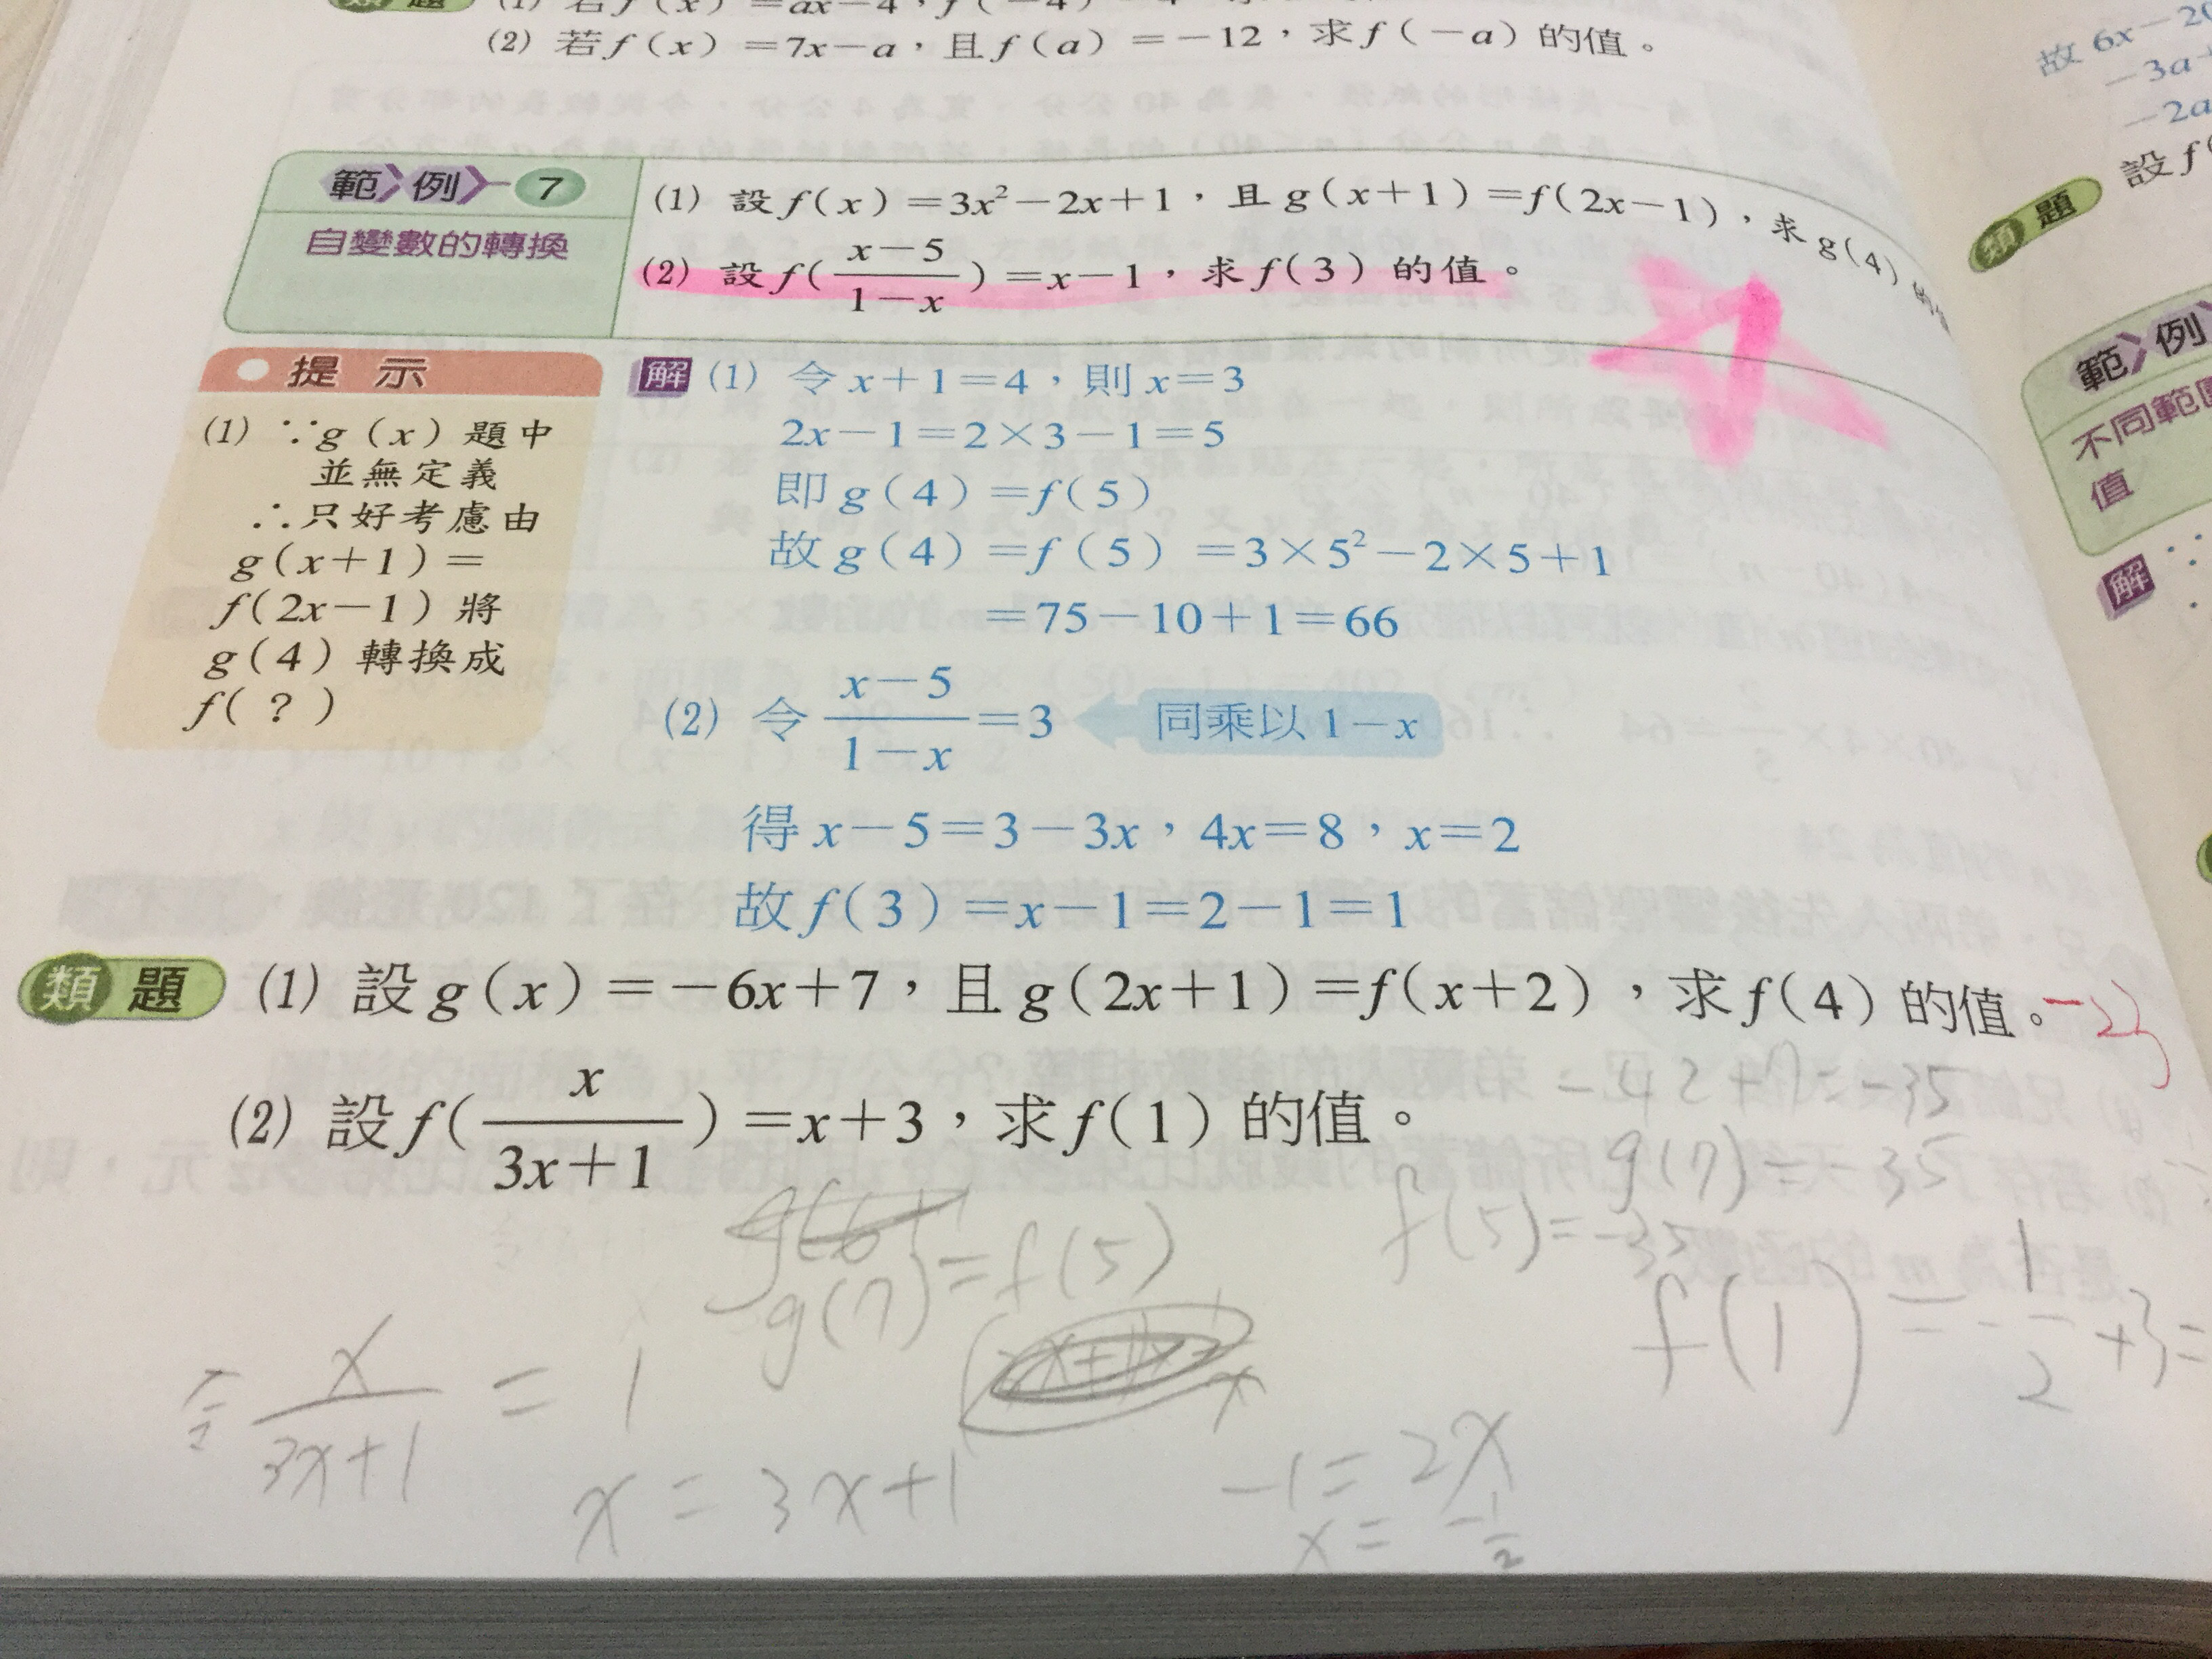 (2) 若f(x)=7x-a，且f(a)=-12，求f(-a)的值。
範例 7
自變數的轉換
(1) 設f(x)=3x²-2x+1，且g(x+1)=f(2x-1)，求g(4)
(2) 設f(\frac{x-5}{1-x})=x-1，求f(3)的值。
提示
(1) ∵g(x)題中
並無定義
∴只好考慮由
g(x+1)=
f(2x-1)將
g(4)轉換成
f(?)
解 (1) 令x+1=4，則x=3
2x-1=2×3-1=5
即g(4)=f(5)
故g(4)=f(5)=3×5²-2×5+1
=75-10+1=66
(2) 令\frac{x-5}{1-x}=3 同乘以1-x
得x-5=3-3x，4x=8，x=2
故f(3)=x-1=2-1=1
類題 (1) 設g(x)=-6x+7，且g(2x+1)=f(x+2)，求f(4)的值。-23
(2) 設f(\frac{x}{3x+1})=x+3，求f(1)的值。
-42+7=-35
g(7)=-35
f(5)=-35
g(7)=f(5)
f(1)=-\frac{1}{2}+3=
\frac{x}{3x+1}=1
x=3x+1
-1=2x
x=-\frac{1}{2}
故6x-20
-3a+
-2a
類題 設f(
範例
不同範圍
值
解 ∵